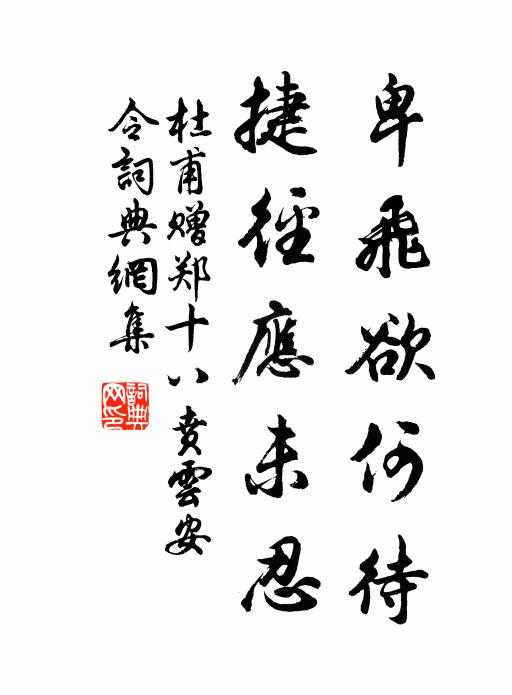 卑飛欲何待
捷徑應未忍
杜甫贈郑十八賁雲安
令詞典網集
詞典网印